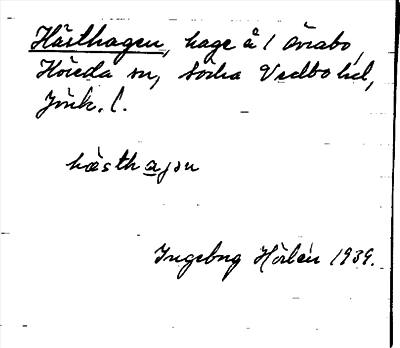 Hästhagen, hage å 1 Övrabo,
Höreda sn, Södra Vedbo hd,
Jönk. l.
hæsthagən
Ingeborg Hörlén 1939.